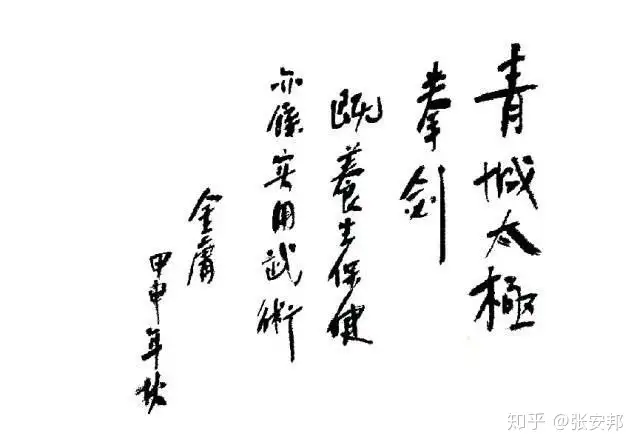 青城太極
拳劍
既養生保健
亦係实用武術
金庸
甲申年秋
知乎 @张安邦